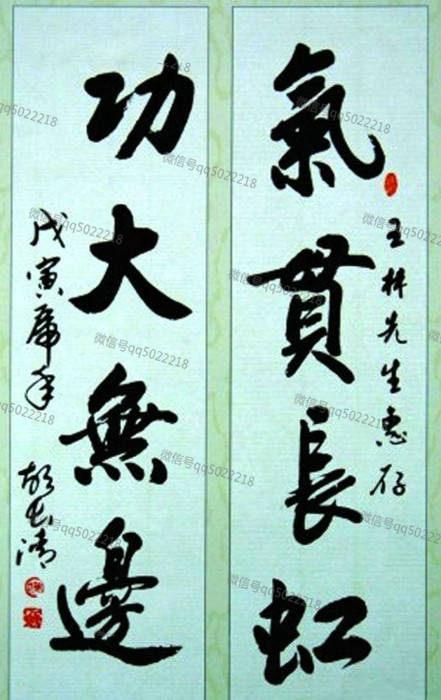 氣貫長虹
王林先生惠存
功大無邊
戊寅虎年
胡长清
微信号qq5022218
微信号qq5022218
微信号qq5022218
微信号qq5022218
微信号qq5022218
微信号qq5022218
微信号qq5022218
微信号qq5022218
微信号qq5022218
微信号qq5022218